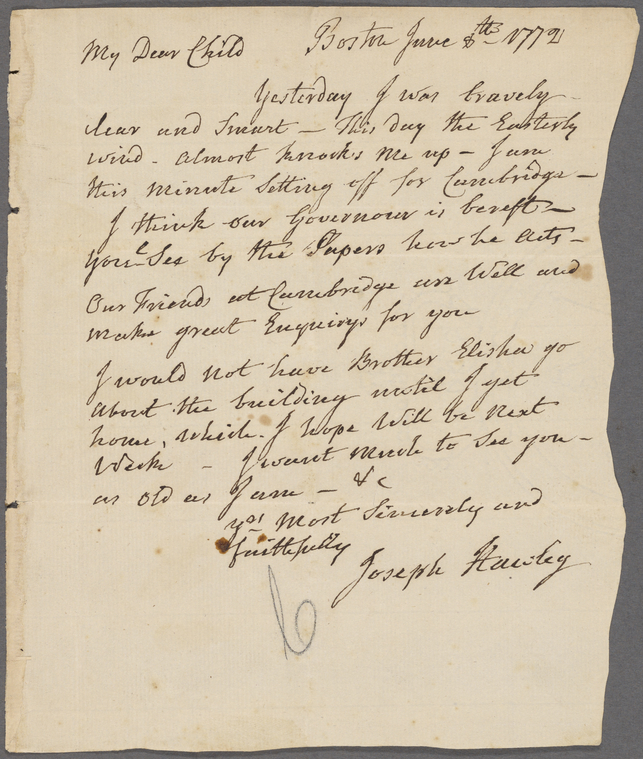 My Dear Child Boston June 8th 1772
Yesterday I was bravely
clear and Smart – This day the Easterly
wind – almost knocks me up – I am
this minute Setting off for Cambridge –
I think our Governour is bereft –
You'l See by the Papers how he acts –
Our Friends at Cambridge are Well and
make great Enquirys for you
I would not have Brother Elisha go
about the building until I get
home, which I hope Will be next
Week – I want Much to See you –
as old as I am – &c
yrs most Sincerely and
faithfully
Joseph Hawley